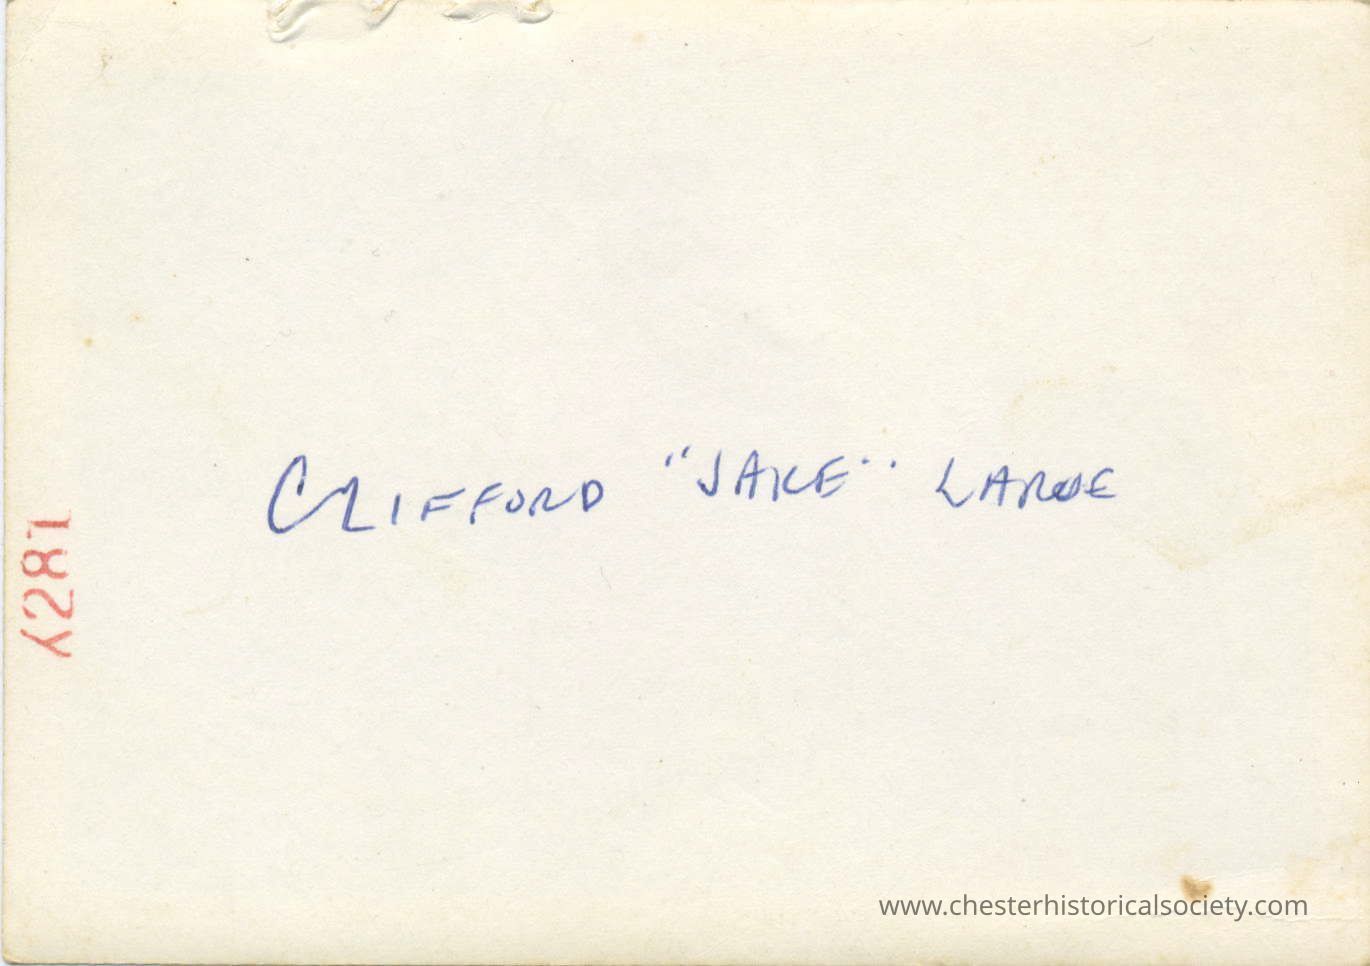 CLIFFORD "JAKE" LARUE
Y281
www.chesterhistoricalsociety.com